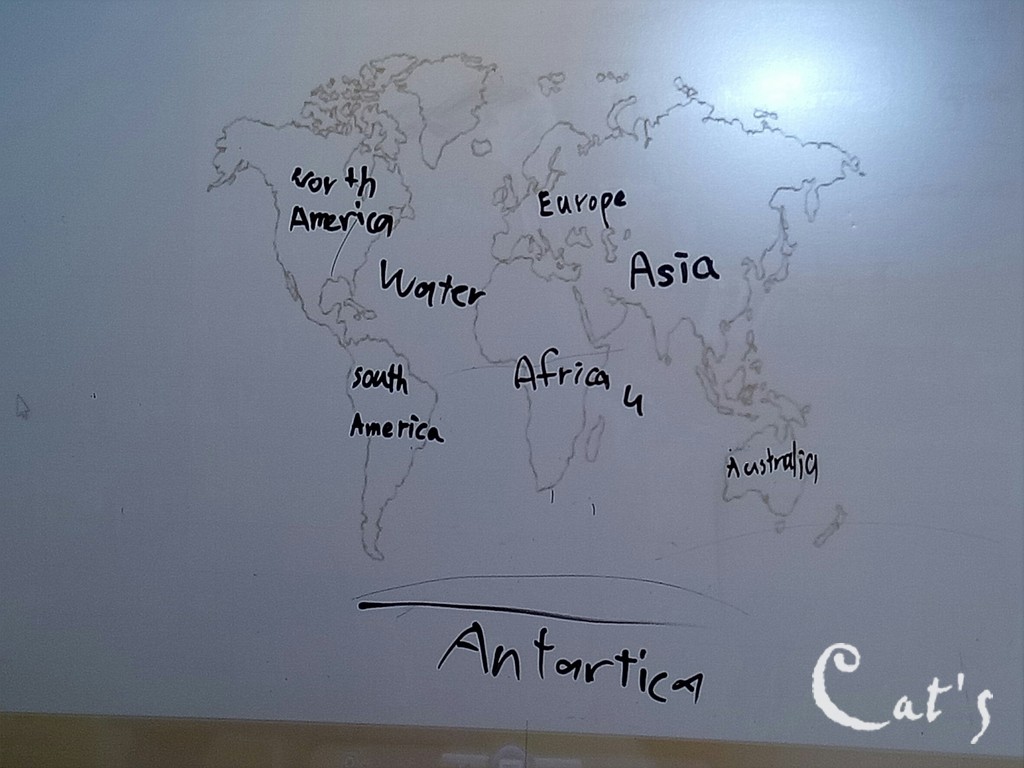 North
America
Europe
Asia
Water
South
America
Africa
4
Australia
Antartica
Cat's